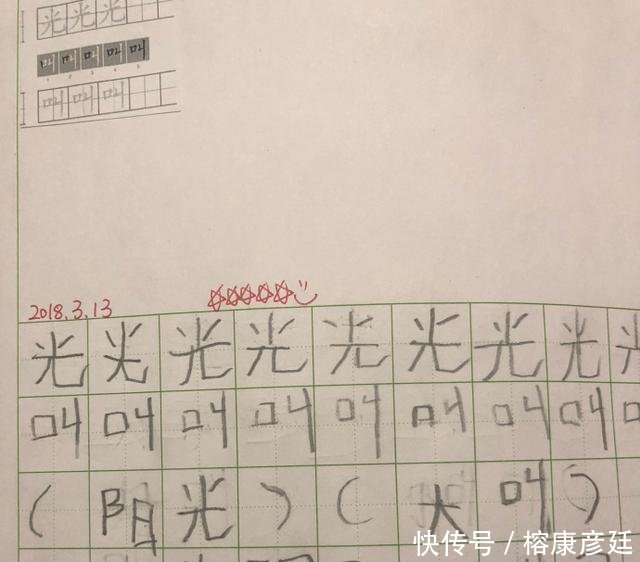 光光光
叫叫叫叫叫
叫叫叫
2018.3.13
光光光光光光光光
叫叫叫叫叫叫叫叫
(阳光)(大叫)
快传号/榕康彦廷